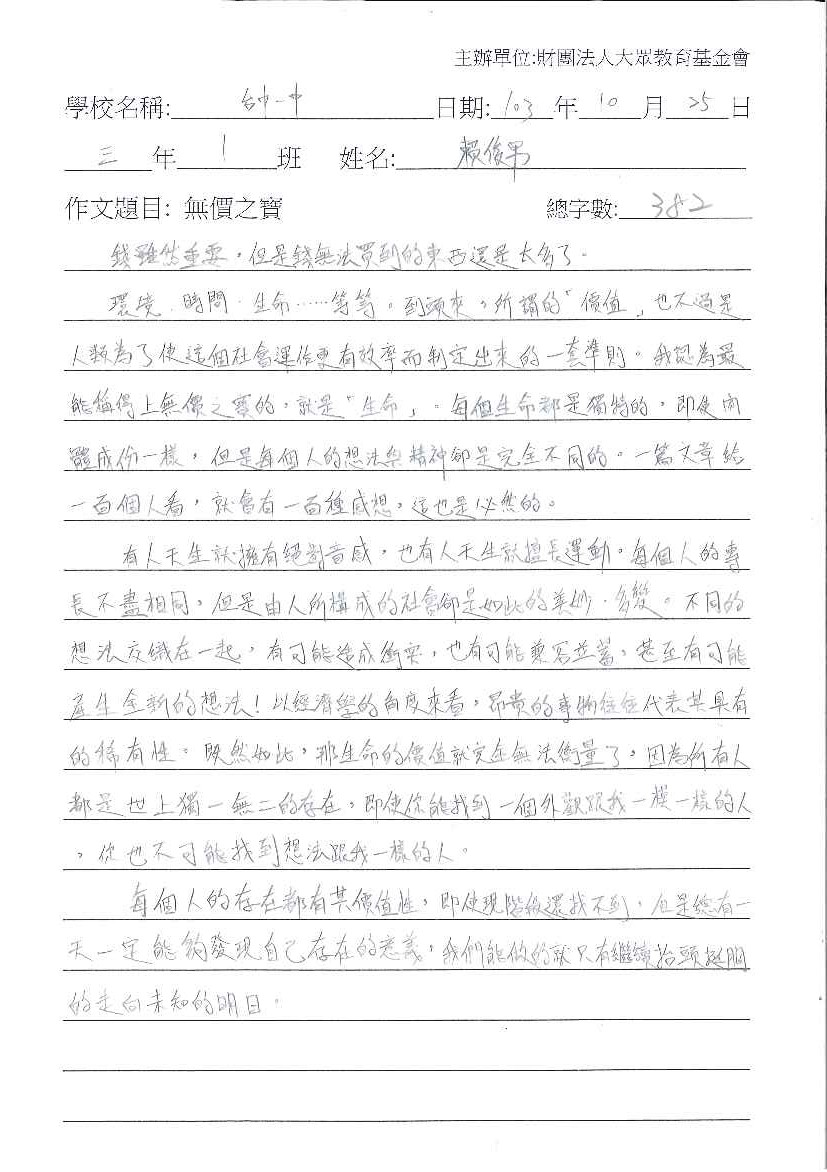 主辦單位:財團法人大眾教育基金會
學校名稱: 台中一中 日期: 103 年 10 月 25 日
三 年 1 班 姓名: 賴俊男
作文題目: 無價之寶 總字數: 382
錢雖然重要，但是錢無法買到的東西還是太多了。
環境、時間、生命……等等。到頭來，所謂的「價值」也不過是
人類為了使這個社會運作更有效率而制定出來的一套準則。我認為最
能稱得上無價之寶的，就是「生命」。每個生命都是獨特的，即使肉
體成份一樣，但是每個人的想法與精神卻是完全不同的。一篇文章給
一百個人看，就會有一百種感想，這也是必然的。
有人天生就擁有絕對音感，也有人天生就擅長運動。每個人的專
長不盡相同，但是由人所構成的社會卻是如此的美妙、多變。不同的
想法交織在一起，有可能造成衝突，也有可能兼容並蓄，甚至有可能
產生全新的想法！以經濟學的角度來看，昂貴的事物往往代表其具有
的稀有性。既然如此，那生命的價值就完全無法衡量了，因為所有人
都是世上獨一無二的存在，即使你能找到一個外觀跟我一模一樣的人
，你也不可能找到想法跟我一樣的人。
每個人的存在都有其價值性，即使現階級還找不到，但是總有一
天一定能夠發現自己存在的意義，我們能做的就只有繼續抬頭挺胸
的走向未知的明日。